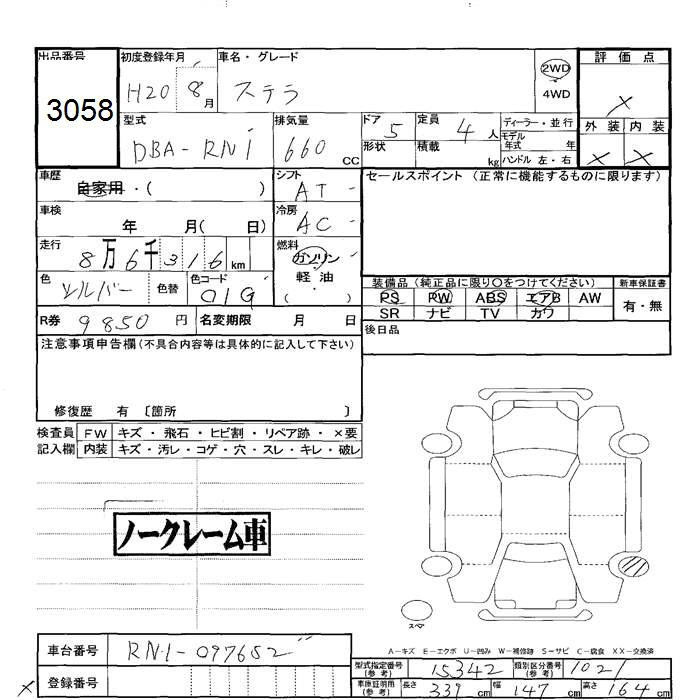 出品番号 初度登録年月 車名・グレード 2WD 評価点
3058 H20 8月 ステラ 4WD ×
型式 排気量 ドア 定員 ディーラー・並行 外装 内装
DBA-RN1 660 CC 5 4人 モデル年式 年 × ×
形状 積載 kg ハンドル 左・右
車歴 自家用・( ) シフト AT- セールスポイント (正常に機能するものに限ります)
車検 年 月( 日) 冷房 AC-
走行 8万6千316km 燃料 ガソリン 軽油・( )
色 シルバー 色替 色コード 01G 装備品 (純正品に限り○をつけてください) 新車保証書
PS PW ABS エアB AW 有・無
R券 9850円 名変期限 月 日 SR ナビ TV カワ
後日品
注意事項申告欄(不具合内容等は具体的に記入して下さい)
修復歴 有 〔箇所 〕
検査員 FW キズ・飛石・ヒビ割・リペア跡・×要
記入欄 内装 キズ・汚レ・コゲ・穴・スレ・キレ・破レ
ノークレーム車
スペア
A-キズ E-エクボ U-凹み W-補修跡 S-サビ C-腐食 XX-交換済
車台番号 RN1-097652
型式指定番号(参考) 15342 類別区分番号(参考) 1021
× 登録番号
車庫証明用(参考) 長さ 339cm 幅 147cm 高さ 164cm